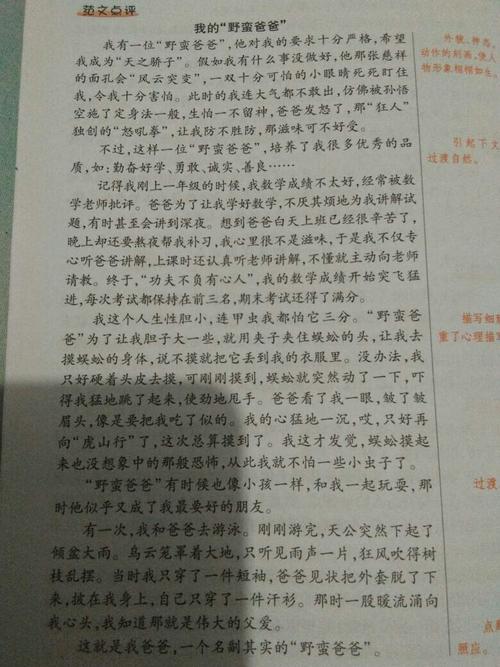 范文点评
我的“野蛮爸爸”
我有一位“野蛮爸爸”，他对我的要求十分严格，希望
我成为“天之骄子”。假如我有什么事没做好，他那张慈祥
的面孔会“风云突变”，一双十分可怕的小眼睛死死盯住
我，令我十分害怕。此时的我连大气都不敢出，仿佛被孙悟
空施了定身法一般，生怕一不留神，爸爸发怒了，那“狂人”
独创的“怒吼拳”，让我防不胜防，那滋味可不好受。
不过，这样一位“野蛮爸爸”，培养了我很多优秀的品
质，如：勤奋好学、勇敢、诚实、善良……
记得我刚上一年级的时候，我数学成绩不太好，经常被
数学老师批评。爸爸为了让我学好数学，不厌其烦地为我讲解试
题，有时甚至会讲到深夜。想到爸爸白天上班已经很辛苦了，
晚上却还要熬夜帮我补习，我心里很不是滋味，于是我不仅专
心听爸爸讲解，上课时还认真听老师讲解，不懂就主动向老师
请教。终于，“功夫不负有心人”，我的数学成绩开始突飞猛
进，每次考试都保持在前三名，期末考试还得了满分。
我这个人生性胆小，连甲虫我都怕它三分。“野蛮爸
爸”为了让我胆子大一些，就用夹子夹住蜈蚣的头，让我去
摸蜈蚣的身体，说不摸就把它丢到我的衣服里。没办法，我
只好硬着头皮去摸，可刚刚摸到，蜈蚣就突然动了一下，吓
得我猛地跳了起来，使劲地甩手。爸爸看了我一眼，皱了皱
眉头，像是要把我吃了似的。我的心猛地一沉，哎，只好再
向“虎山行”了，这次总算摸到了。我这才发觉，蜈蚣摸起
来也没想象中的那般恐怖，从此我就不怕一些小虫子了。
“野蛮爸爸”有时候也像小孩一样，和我一起玩耍，那
时他似乎又成了我最要好的朋友。
有一次，我和爸爸去游泳。刚刚游完，天公突然下起了
倾盆大雨。乌云笼罩着大地，只听见雨声一片，狂风吹得树
枝乱摆。当时我只穿了一件短袖，爸爸见状把外套脱了下
来，披在我身上，自己只穿了一件汗衫。那时一股暖流涌向
我心头，我知道那就是伟大的父爱。
这就是我爸爸，一个名副其实的“野蛮爸爸”。
外貌、神态、
动作的刻画，使人
物形象栩栩如生。
引起下文
过渡自然。
描写细
重了心理描写
过渡
点
照应。